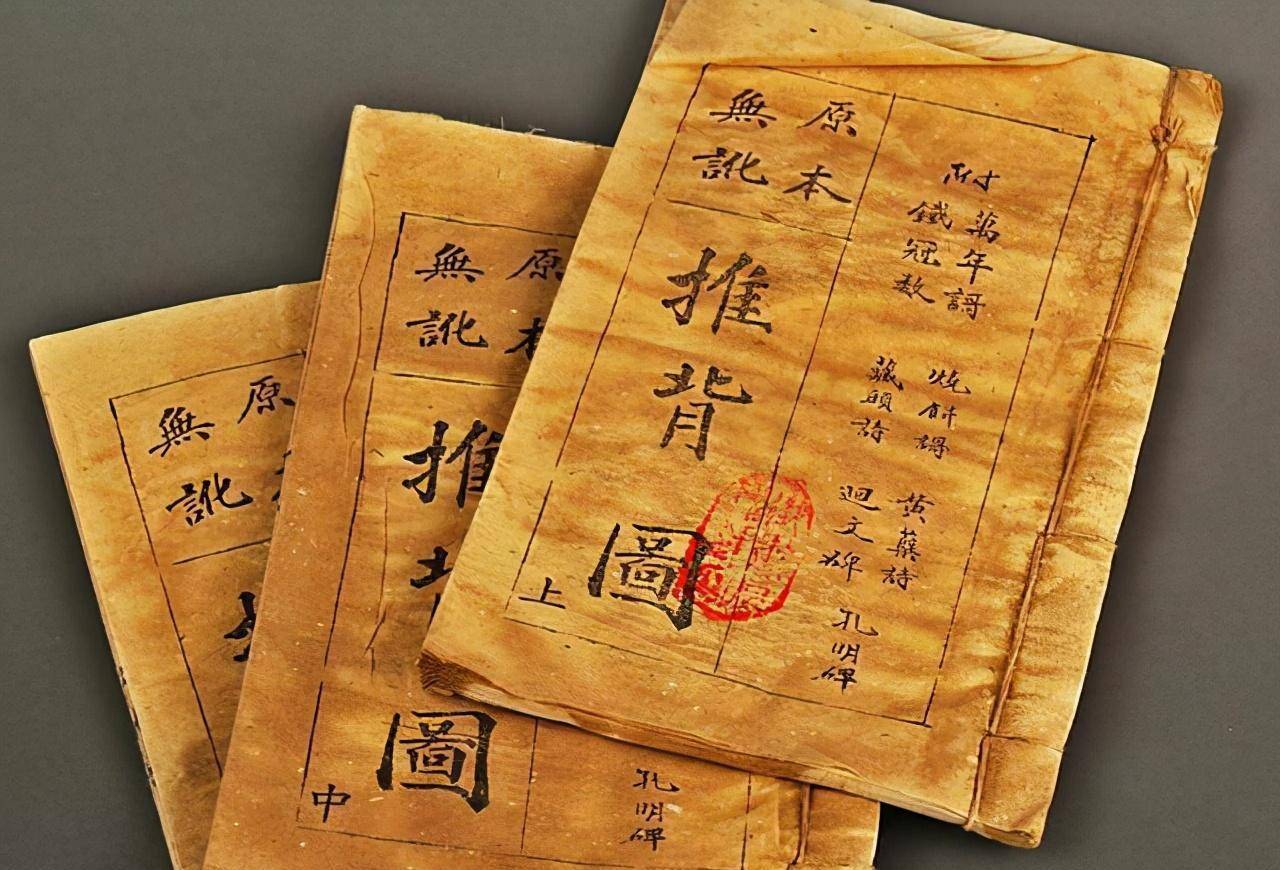 附
萬年謌
鐵冠数
烧餅謌
藏頭詩
黄蘗詩
迴文碑
孔明碑
原本
無訛
推背圖
上
孔明碑
原本
無訛
推背圖
中
原
無訛